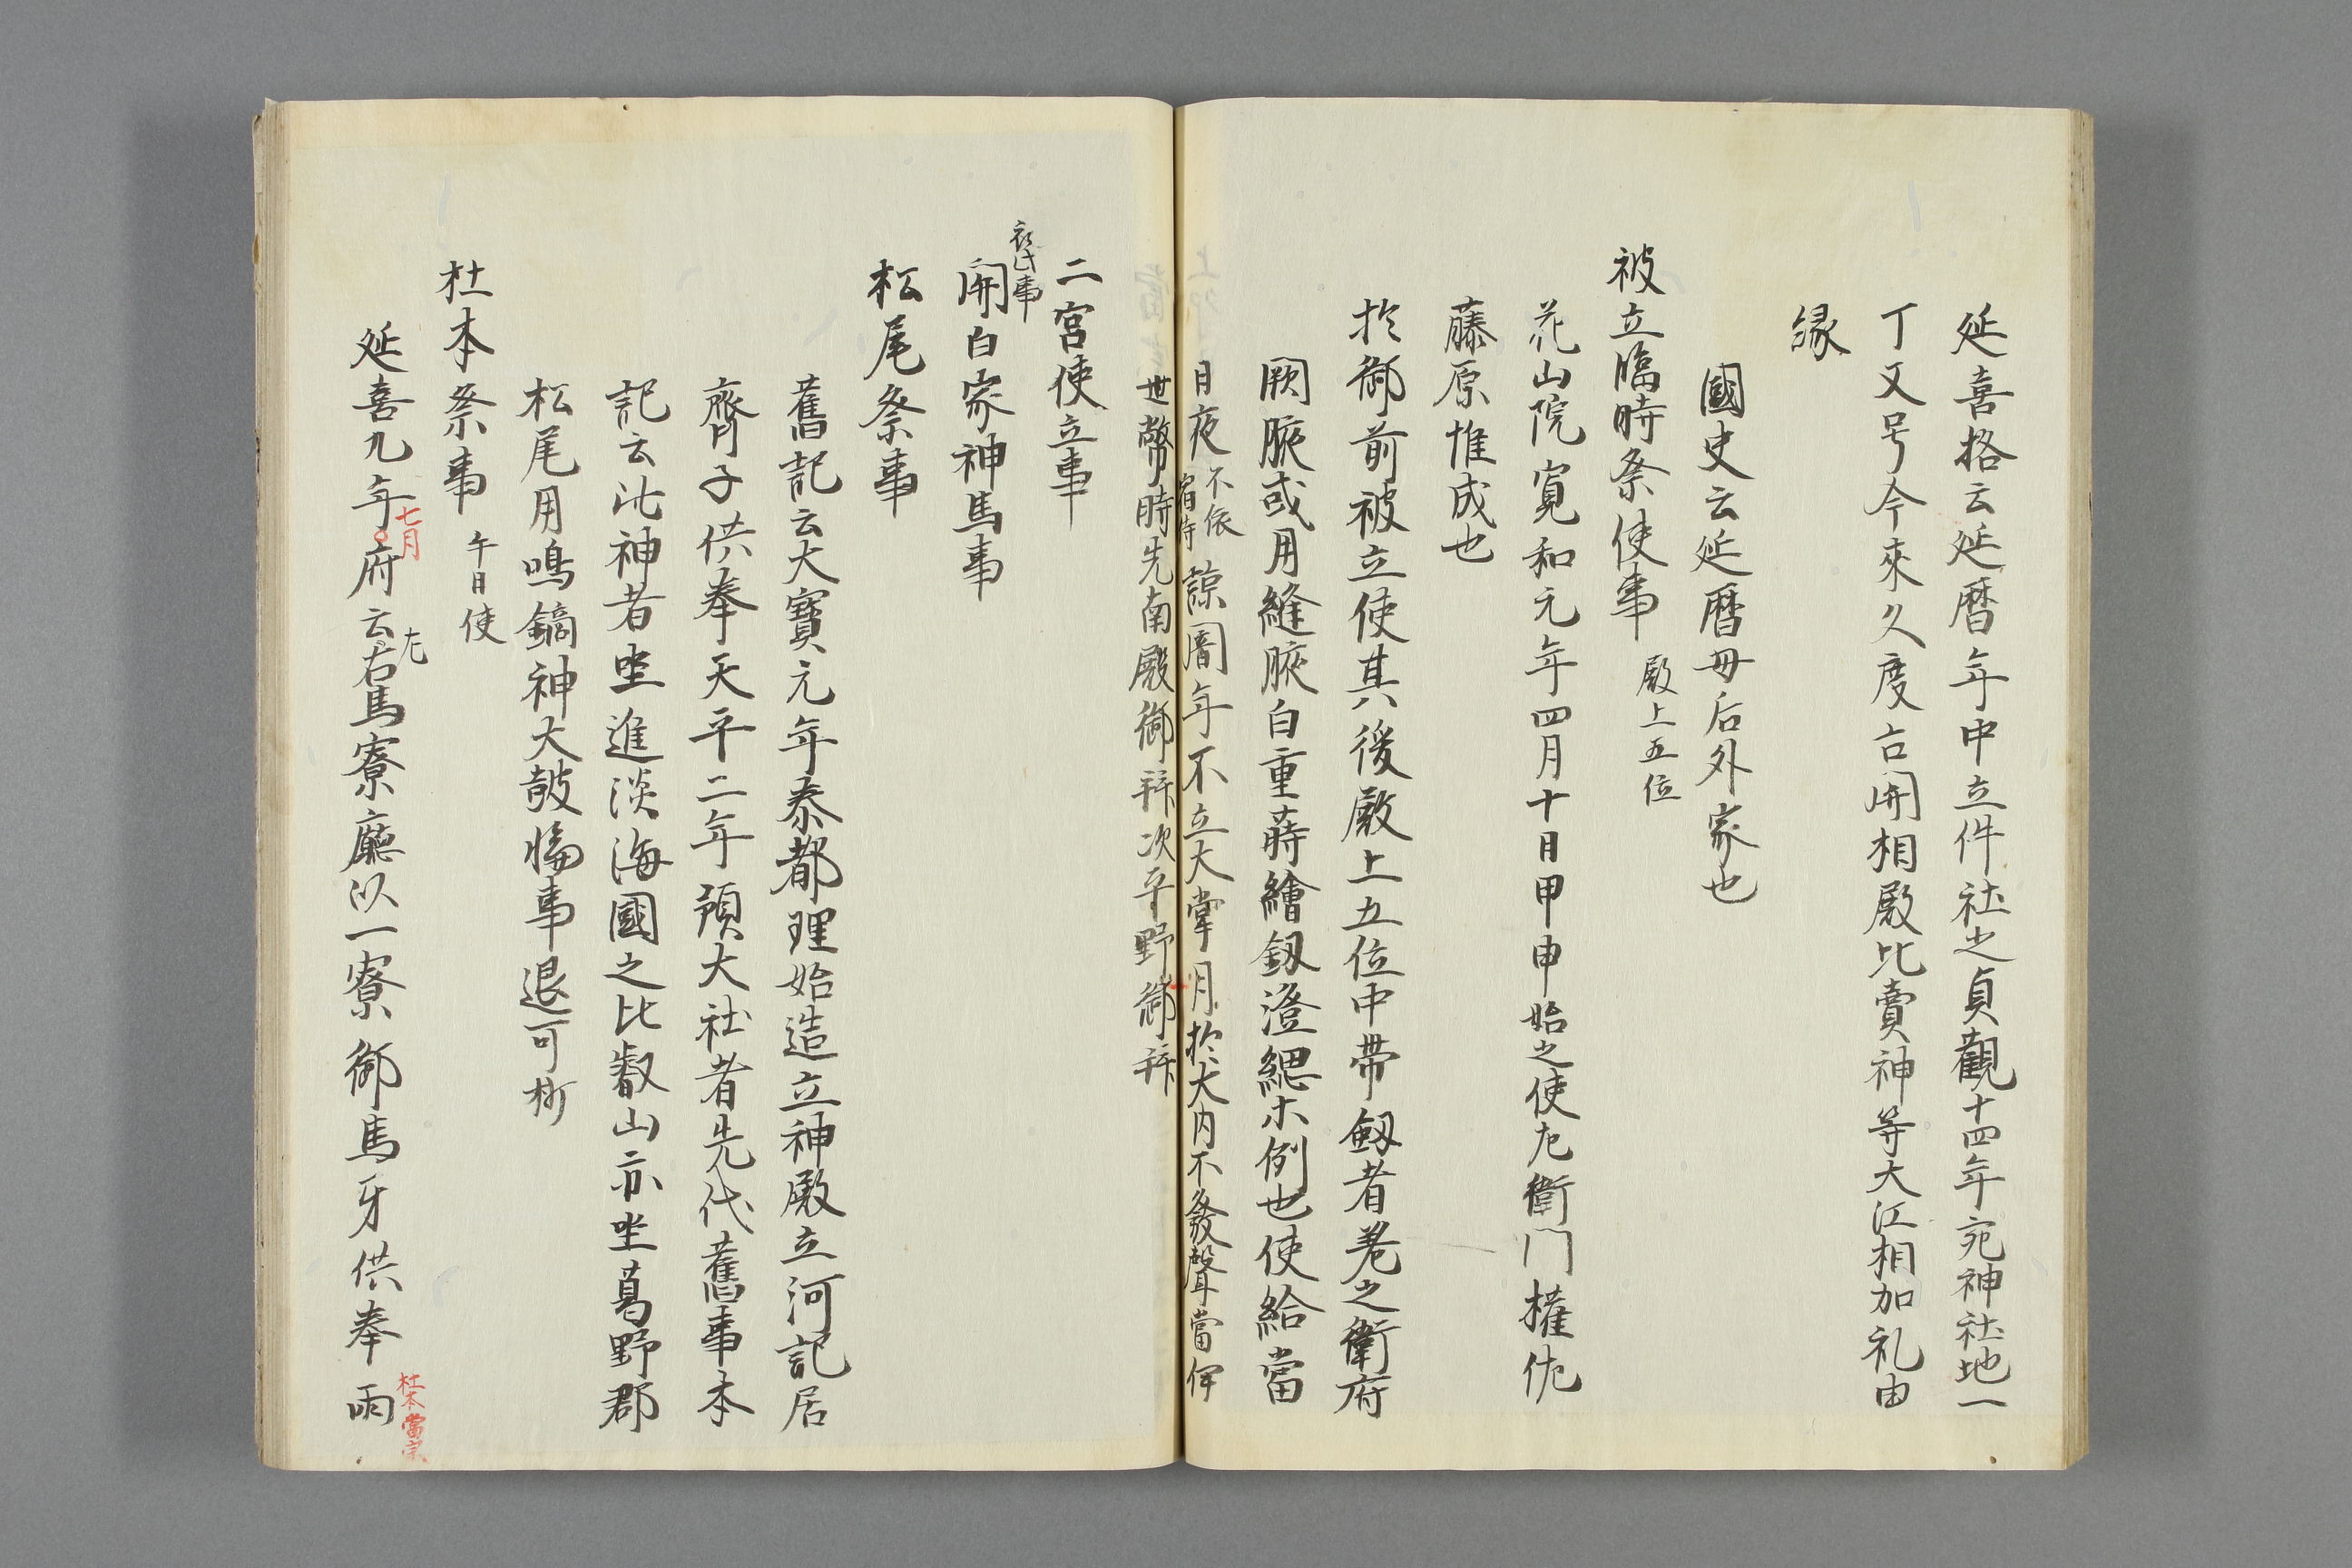 延喜格云延暦年中立件社之貞觀十四年宛神社地一
丁又号今來久度古開相殿比賣神等大江相加礼由
縁
國史云延暦母后外家也
被立臨時祭使事 殿上五位
花山院寛和元年四月十日甲申始之使左衛門權佐
藤原惟成也
於御前被立使其後殿上五位中帯釼者差之衛府
闕腋或用縫腋白重蒔繪釼澄緦木例也使給當
日夜 不依宿侍 諒闇年不立大掌月於大内不發聲當
世幣時先南殿御拜次平野御拜
二宮使立事
開白家神馬事
松尾祭事
舊記云大寶元年秦都理始造立神殿立阿礼居
齊子供奉天平二年預大社者先代舊事本
記云此神者坐進淡海國之比叡山亦坐葛野郡
松尾用鳴鏑神大皷事退可
杜本祭事 午日使
延喜九年七月府云左右馬寮廳以一寮御馬牙供奉雨
杜本當宗